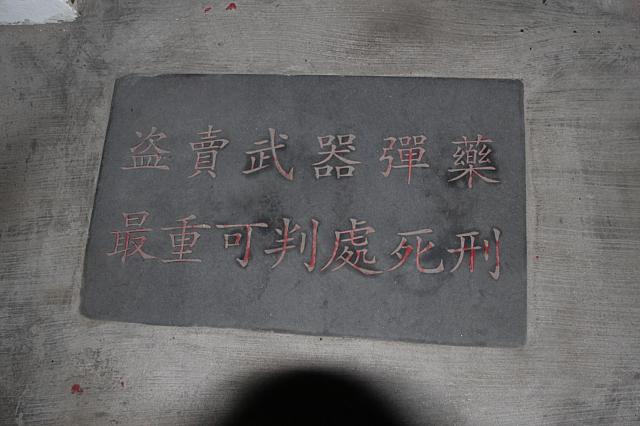 盗賣武器彈藥
最重可判處死刑